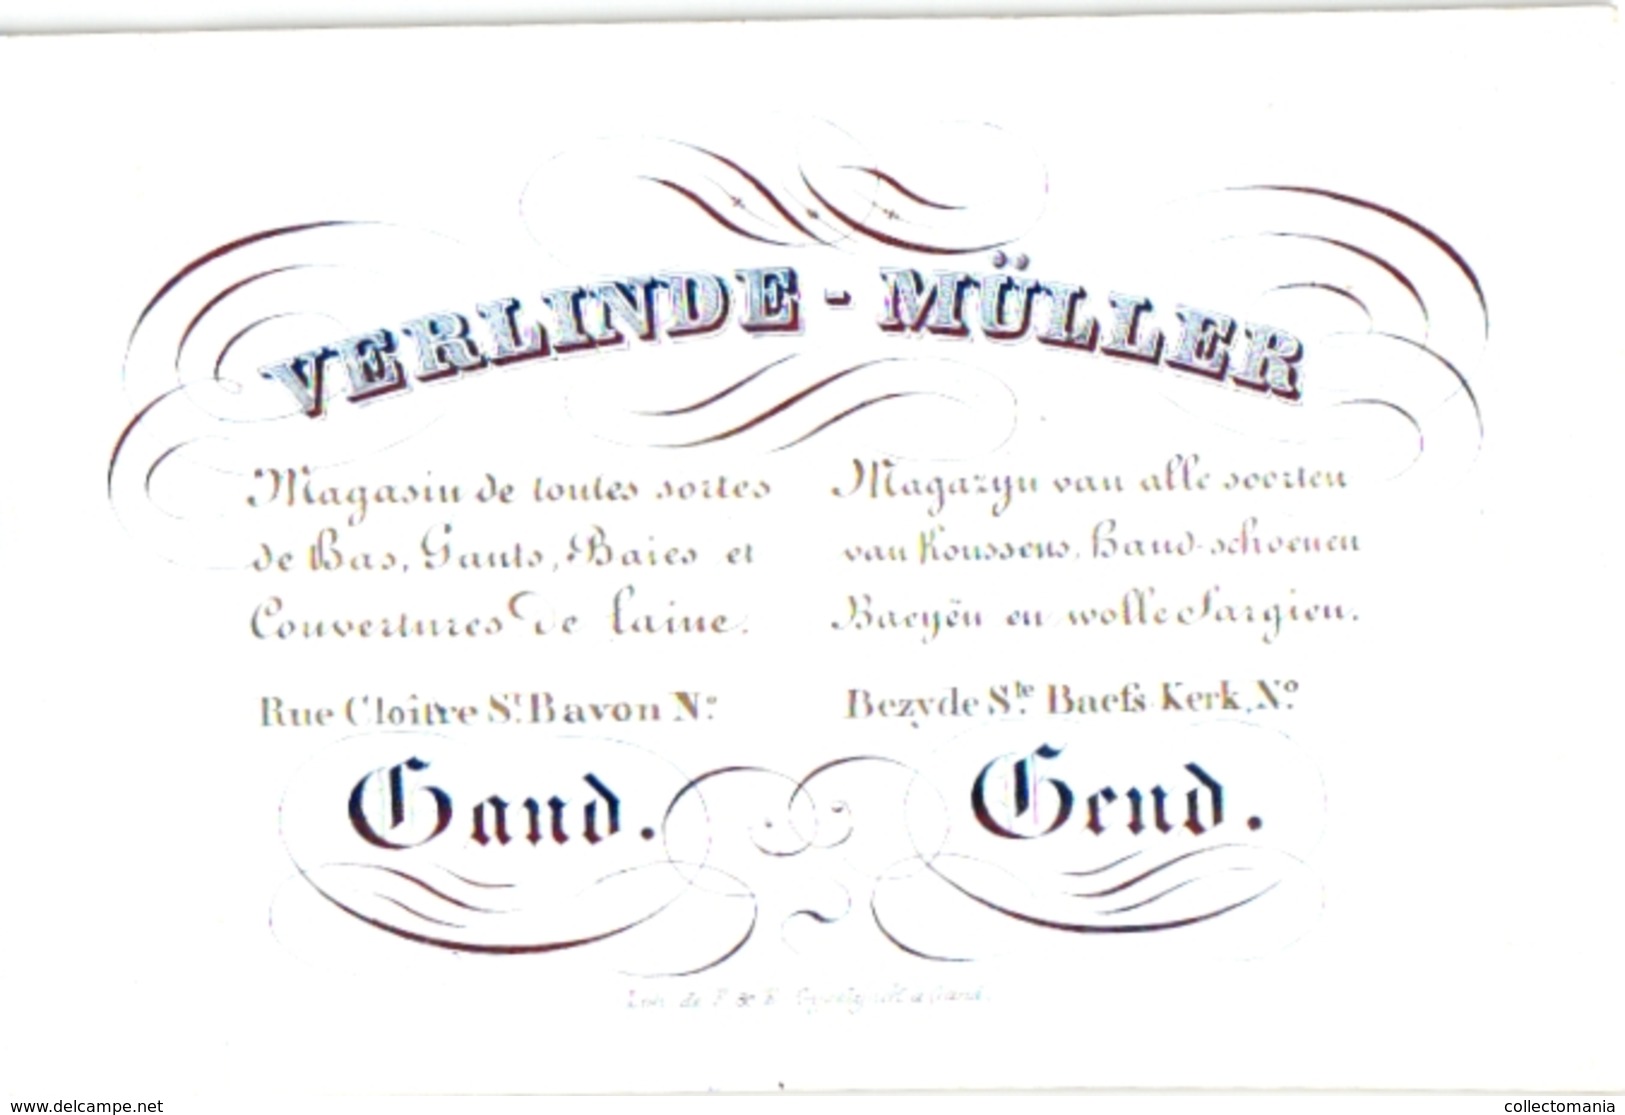 VERLINDE - MÜLLER
Magasin de toutes sortes
de Bas, Gants, Baies et
Couvertures de laine.
Rue Cloître St. Bavon No.
Gand.
Magazyn van alle soorten
van Koussens, Hand-schoenen
Baeyën en wolle Sargien.
Bezyde Ste. Baefs Kerk, No.
Gend.
Lith. de F. & E. Gyselynck à Gand.
www.delcampe.net
collectomania